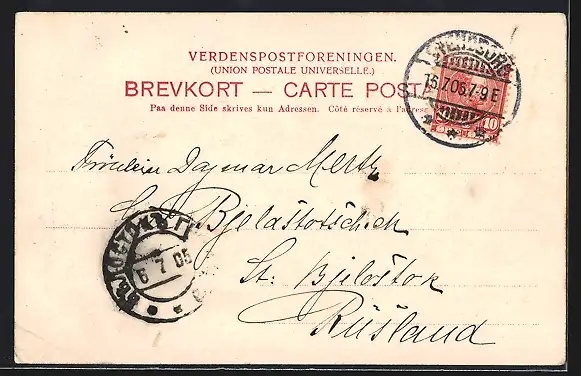 VERDENSPOSTFORENINGEN.
(UNION POSTALE UNIVERSELLE.)
BREVKORT — CARTE POSTA
Paa denne Side skrives kun Adressen. Côté réservé à l'adres
SVENDBORG
7.05.7-9E
10
Fräulein Dagmar Mertz
Bjelaštotschek
БѢЛОСТОКЪ Г
6 7 05
St. Bjeloštok
Rüsland